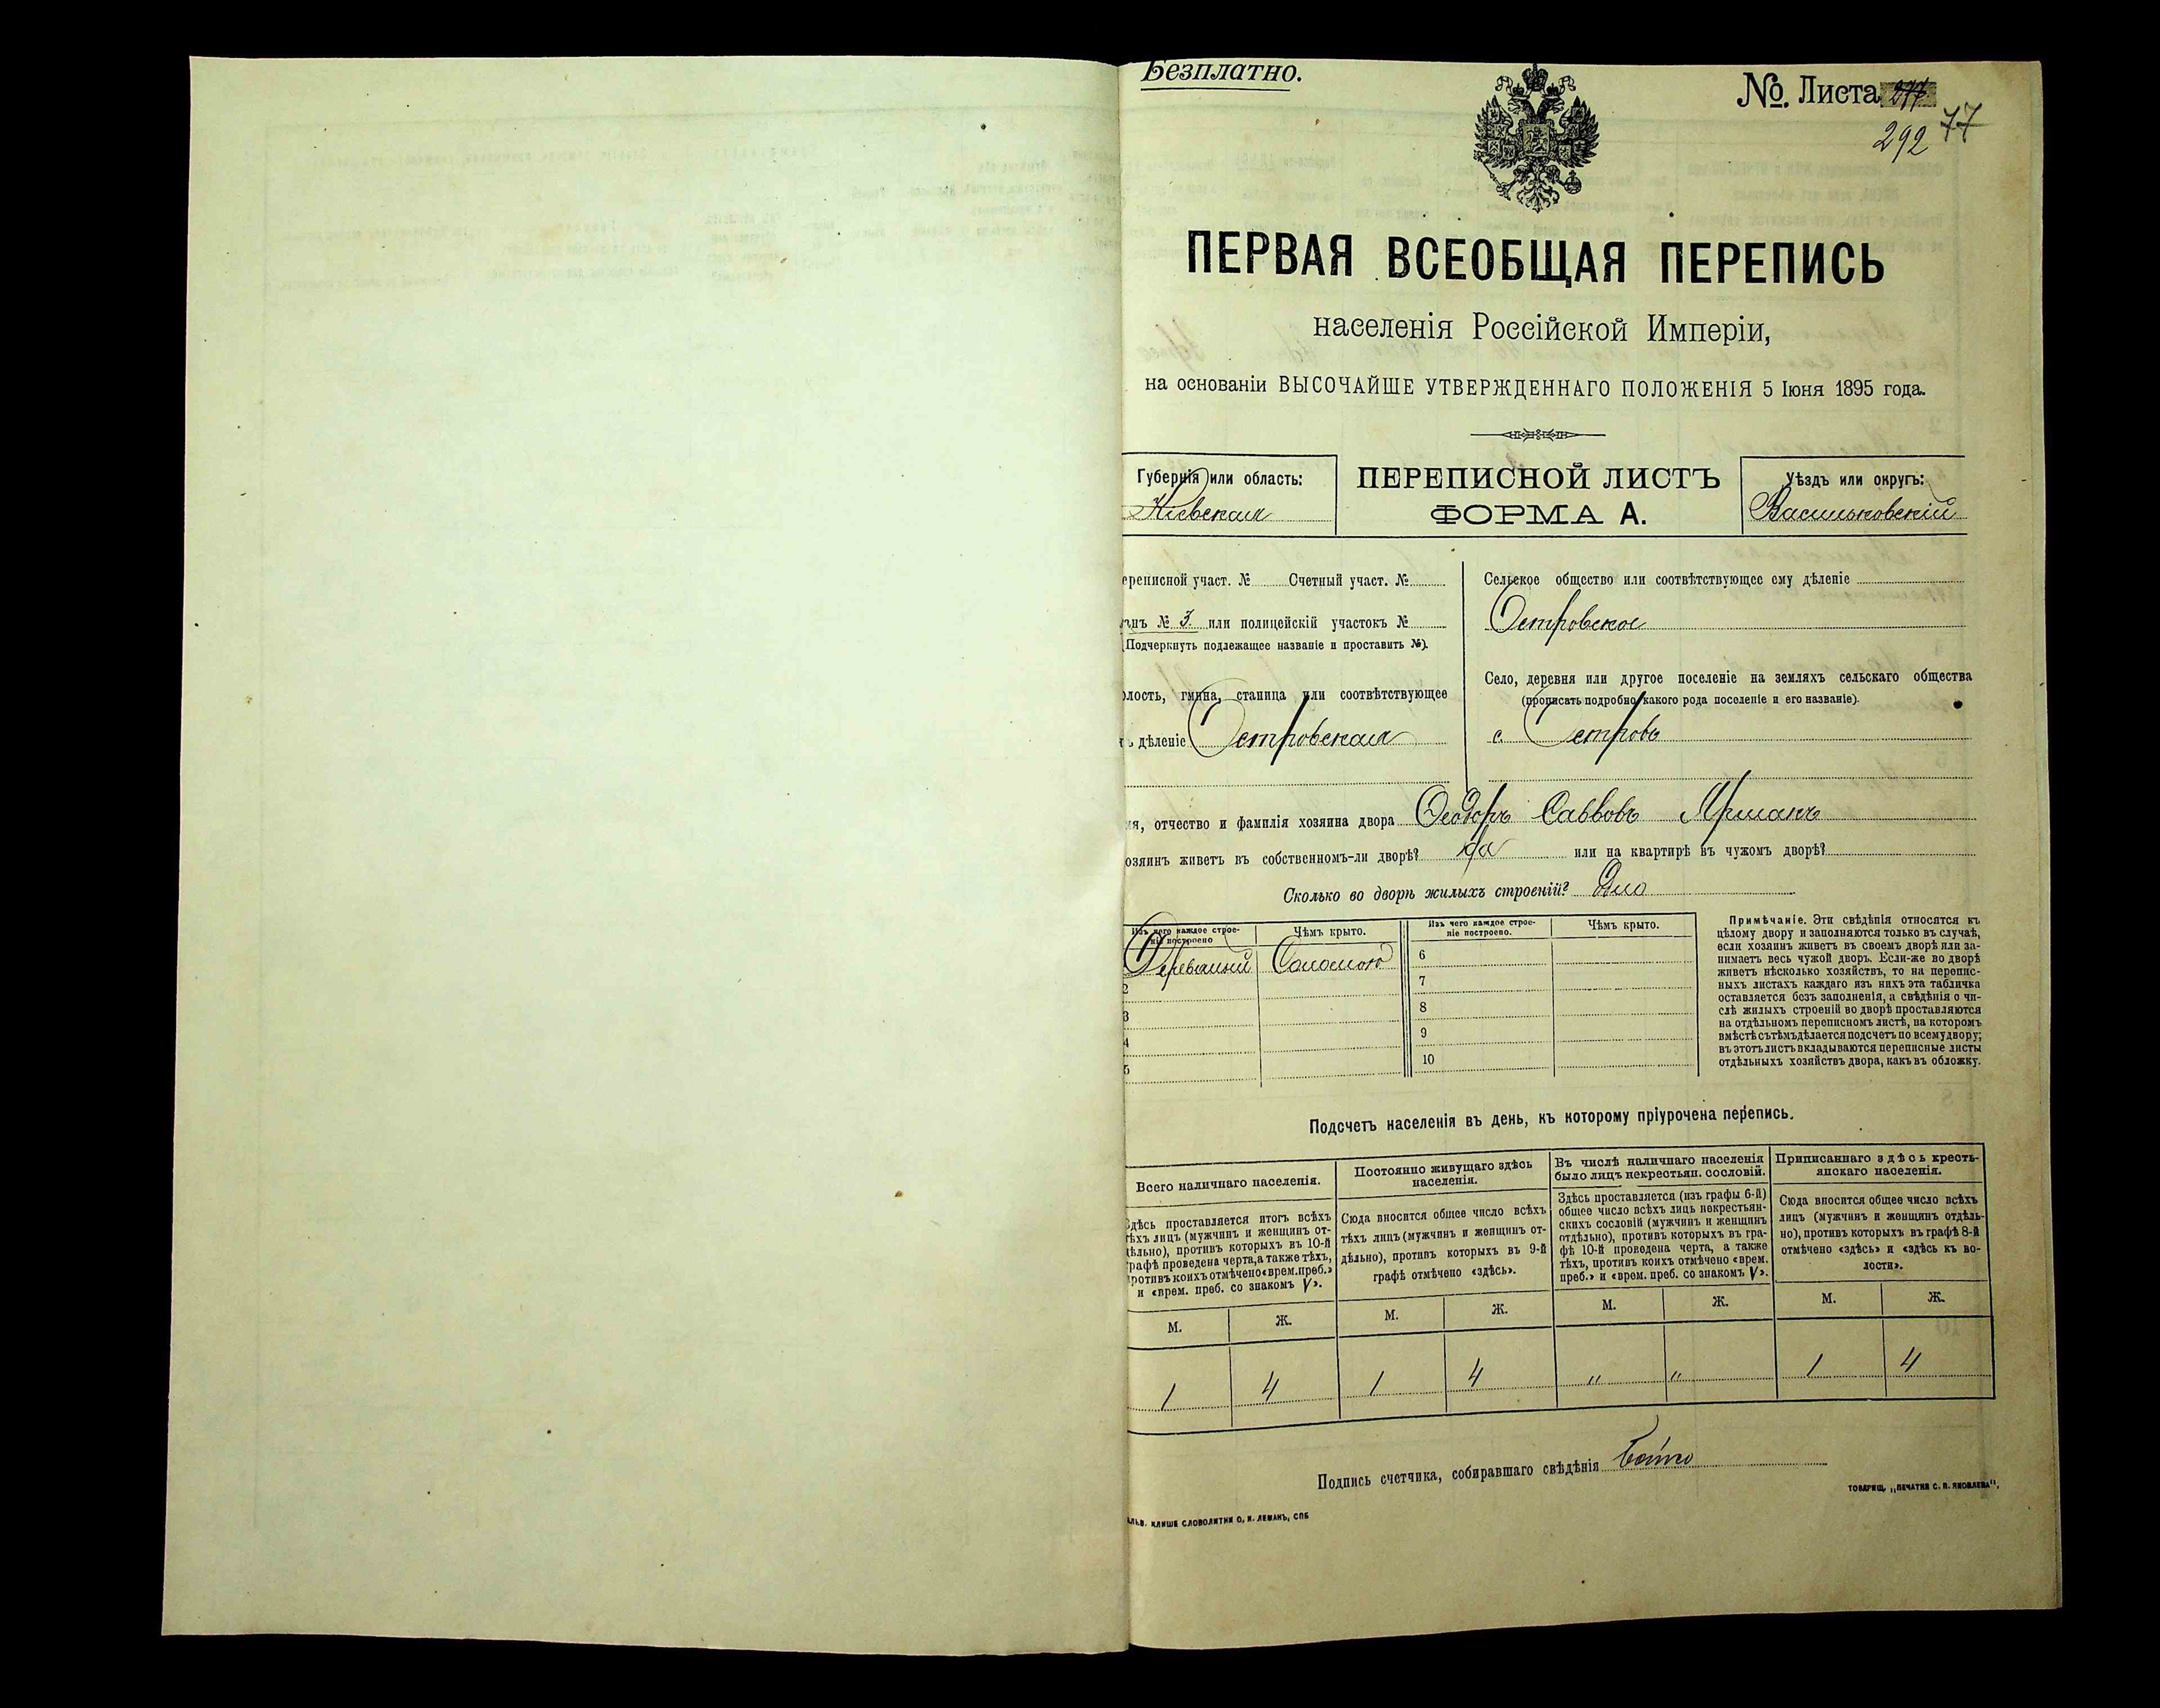 Безплатно.
№. Листа 277
292 77
ПЕРВАЯ ВСЕОБЩАЯ ПЕРЕПИСЬ
населенія Россійской Имперіи,
на основаніи ВЫСОЧАЙШЕ УТВЕРЖДЕННАГО ПОЛОЖЕНІЯ 5 Іюня 1895 года.
Губернія или область:
Кіевская
ПЕРЕПИСНОЙ ЛИСТЪ
ФОРМА А.
Уѣздъ или округъ:
Васильковскій
ереписной участ. № Счетный участ. №
анъ № 3. или полицейскій участокъ №
(Подчеркнуть подлежащее названіе и проставить №).
олость, гмина, станица или соотвѣтствующее
ъ дѣленіе Островская
Сельское общество или соотвѣтствующее ему дѣленіе
Островское
Село, деревня или другое поселеніе на земляхъ сельскаго общества
(прописать подробно какого рода поселеніе и его названіе).
с. Островъ
мя, отчество и фамилія хозяина двора Ѳеодоръ Саввовъ Ярмакъ
озяинъ живетъ въ собственномъ-ли дворѣ? да или на квартирѣ въ чужомъ дворѣ?
Сколько во дворѣ жилыхъ строеній? Одно
Изъ чего каждое строе-
ніе построено
Чѣмъ крыто.
Изъ чего каждое строе-
ніе построено.
Чѣмъ крыто.
Соломою
6
2
7
3
8
4
9
5
10
Примѣчаніе. Эти свѣдѣнія относятся къ
цѣлому двору и заполняются только въ случаѣ,
если хозяинъ живетъ въ своемъ дворѣ или за-
нимаетъ весь чужой дворъ. Если-же во дворѣ
живетъ нѣсколько хозяйствъ, то на перепис-
ныхъ листахъ каждаго изъ нихъ эта табличка
оставляется безъ заполненія, а свѣдѣнія о чи-
слѣ жилыхъ строеній во дворѣ проставляются
на отдѣльномъ переписномъ листѣ, на которомъ
вмѣстѣ съ тѣмъ дѣлается подсчетъ по всему двору;
въ этотъ листъ вкладываются переписные листы
отдѣльныхъ хозяйствъ двора, какъ въ обложку.
Подсчетъ населенія въ день, къ которому пріурочена перепись.
Всего наличнаго населенія.
Здѣсь проставляется итогъ всѣхъ
тѣхъ лицъ (мужчинъ и женщинъ от-
дѣльно), противъ которыхъ въ 10-й
графѣ проведена черта, а также тѣхъ,
противъ коихъ отмѣчено «врем. преб.»
и «врем. преб. со знакомъ V».
Постоянно живущаго здѣсь
населенія.
Сюда вносится общее число всѣхъ
тѣхъ лицъ (мужчинъ и женщинъ от-
дѣльно), противъ которыхъ въ 9-й
графѣ отмѣчено «здѣсь».
Въ числѣ наличнаго населенія
было лицъ некрестьян. сословій.
Здѣсь проставляется (изъ графы 6-й)
общее число всѣхъ лицъ некрестьян-
скихъ сословій (мужчинъ и женщинъ
отдѣльно), противъ которыхъ въ гра-
фѣ 10-й проведена черта, а также
тѣхъ, противъ коихъ отмѣчено «врем.
преб.» и «врем. преб. со знакомъ V».
Приписаннаго здѣсь кресть-
янскаго населенія.
Сюда вносится общее число всѣхъ
лицъ (мужчинъ и женщинъ отдѣль-
но), противъ которыхъ въ графѣ 8-й
отмѣчено «здѣсь» и «здѣсь къ во-
лости».
М. Ж. М. Ж. М. Ж. М. Ж.
1 4 1 4 " " 1 4
Подпись счетчика, собиравшаго свѣдѣнія
ТОВАРИЩ. „ПЕЧАТНЯ С. П. ЯКОВЛЕВА“.
АЛЬВ. КЛИШЕ СЛОВОЛИТНИ О. И. ЛЕМАНЪ, СПБ